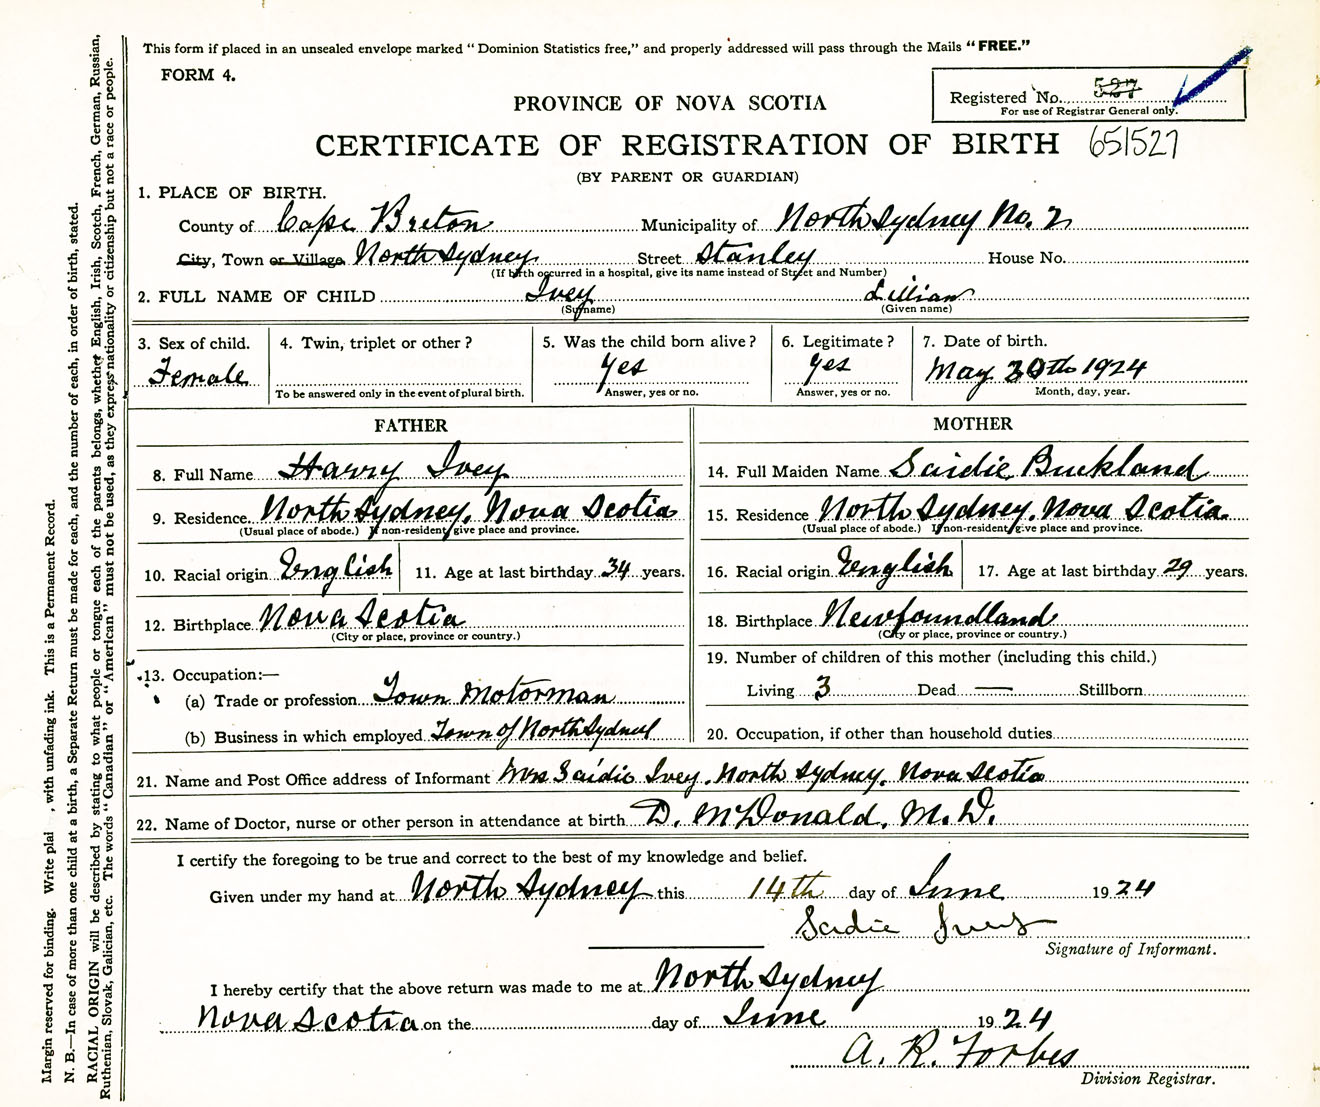 This form if placed in an unsealed envelope marked "Dominion Statistics free," and properly addressed will pass through the Mails "FREE."
FORM 4.
Registered No. 527
For use of Registrar General only.
PROVINCE OF NOVA SCOTIA
CERTIFICATE OF REGISTRATION OF BIRTH 651527
(BY PARENT OR GUARDIAN)
1. PLACE OF BIRTH.
County of Cape Breton Municipality of North Sydney No. 2
City, Town or Village North Sydney Street Stanley House No.
(If birth occurred in a hospital, give its name instead of Street and Number)
2. FULL NAME OF CHILD Ivey Lillian
(Surname) (Given name)
3. Sex of child. 4. Twin, triplet or other? 5. Was the child born alive? 6. Legitimate? 7. Date of birth.
Female Yes Yes May 30th 1924
To be answered only in the event of plural birth. Answer, yes or no. Answer, yes or no. Month, day, year.
FATHER
8. Full Name Harry Ivey
9. Residence North Sydney, Nova Scotia
(Usual place of abode.) If non-resident, give place and province.
10. Racial origin English 11. Age at last birthday 34 years.
12. Birthplace Nova Scotia
(City or place, province or country.)
13. Occupation:—
(a) Trade or profession Town Motorman
(b) Business in which employed Town of North Sydney
MOTHER
14. Full Maiden Name Saidie Buckland
15. Residence North Sydney, Nova Scotia
(Usual place of abode.) If non-resident, give place and province.
16. Racial origin English 17. Age at last birthday 29 years.
18. Birthplace Newfoundland
(City or place, province or country.)
19. Number of children of this mother (including this child.)
Living 3 Dead — Stillborn
20. Occupation, if other than household duties
21. Name and Post Office address of Informant Mrs Saidie Ivey, North Sydney, Nova Scotia
22. Name of Doctor, nurse or other person in attendance at birth D. McDonald, M.D.
I certify the foregoing to be true and correct to the best of my knowledge and belief.
Given under my hand at North Sydney this 14th day of June 1924
Sadie Ivey
Signature of Informant.
I hereby certify that the above return was made to me at North Sydney
Nova Scotia on the day of June 1924
A. R. Forbes
Division Registrar.
Margin reserved for binding. Write plai , with unfading ink. This is a Permanent Record.
N. B.—In case of more than one child at a birth, a Separate Return must be made for each, and the number of each, in order of birth, stated.
RACIAL ORIGIN will be described by stating to what people or tongue each of the parents belongs, whether English, Irish, Scotch, French, German, Russian,
Ruthenian, Slovak, Galician, etc. The words "Canadian" or "American" must not be used, as they express nationality or citizenship but not a race or people.